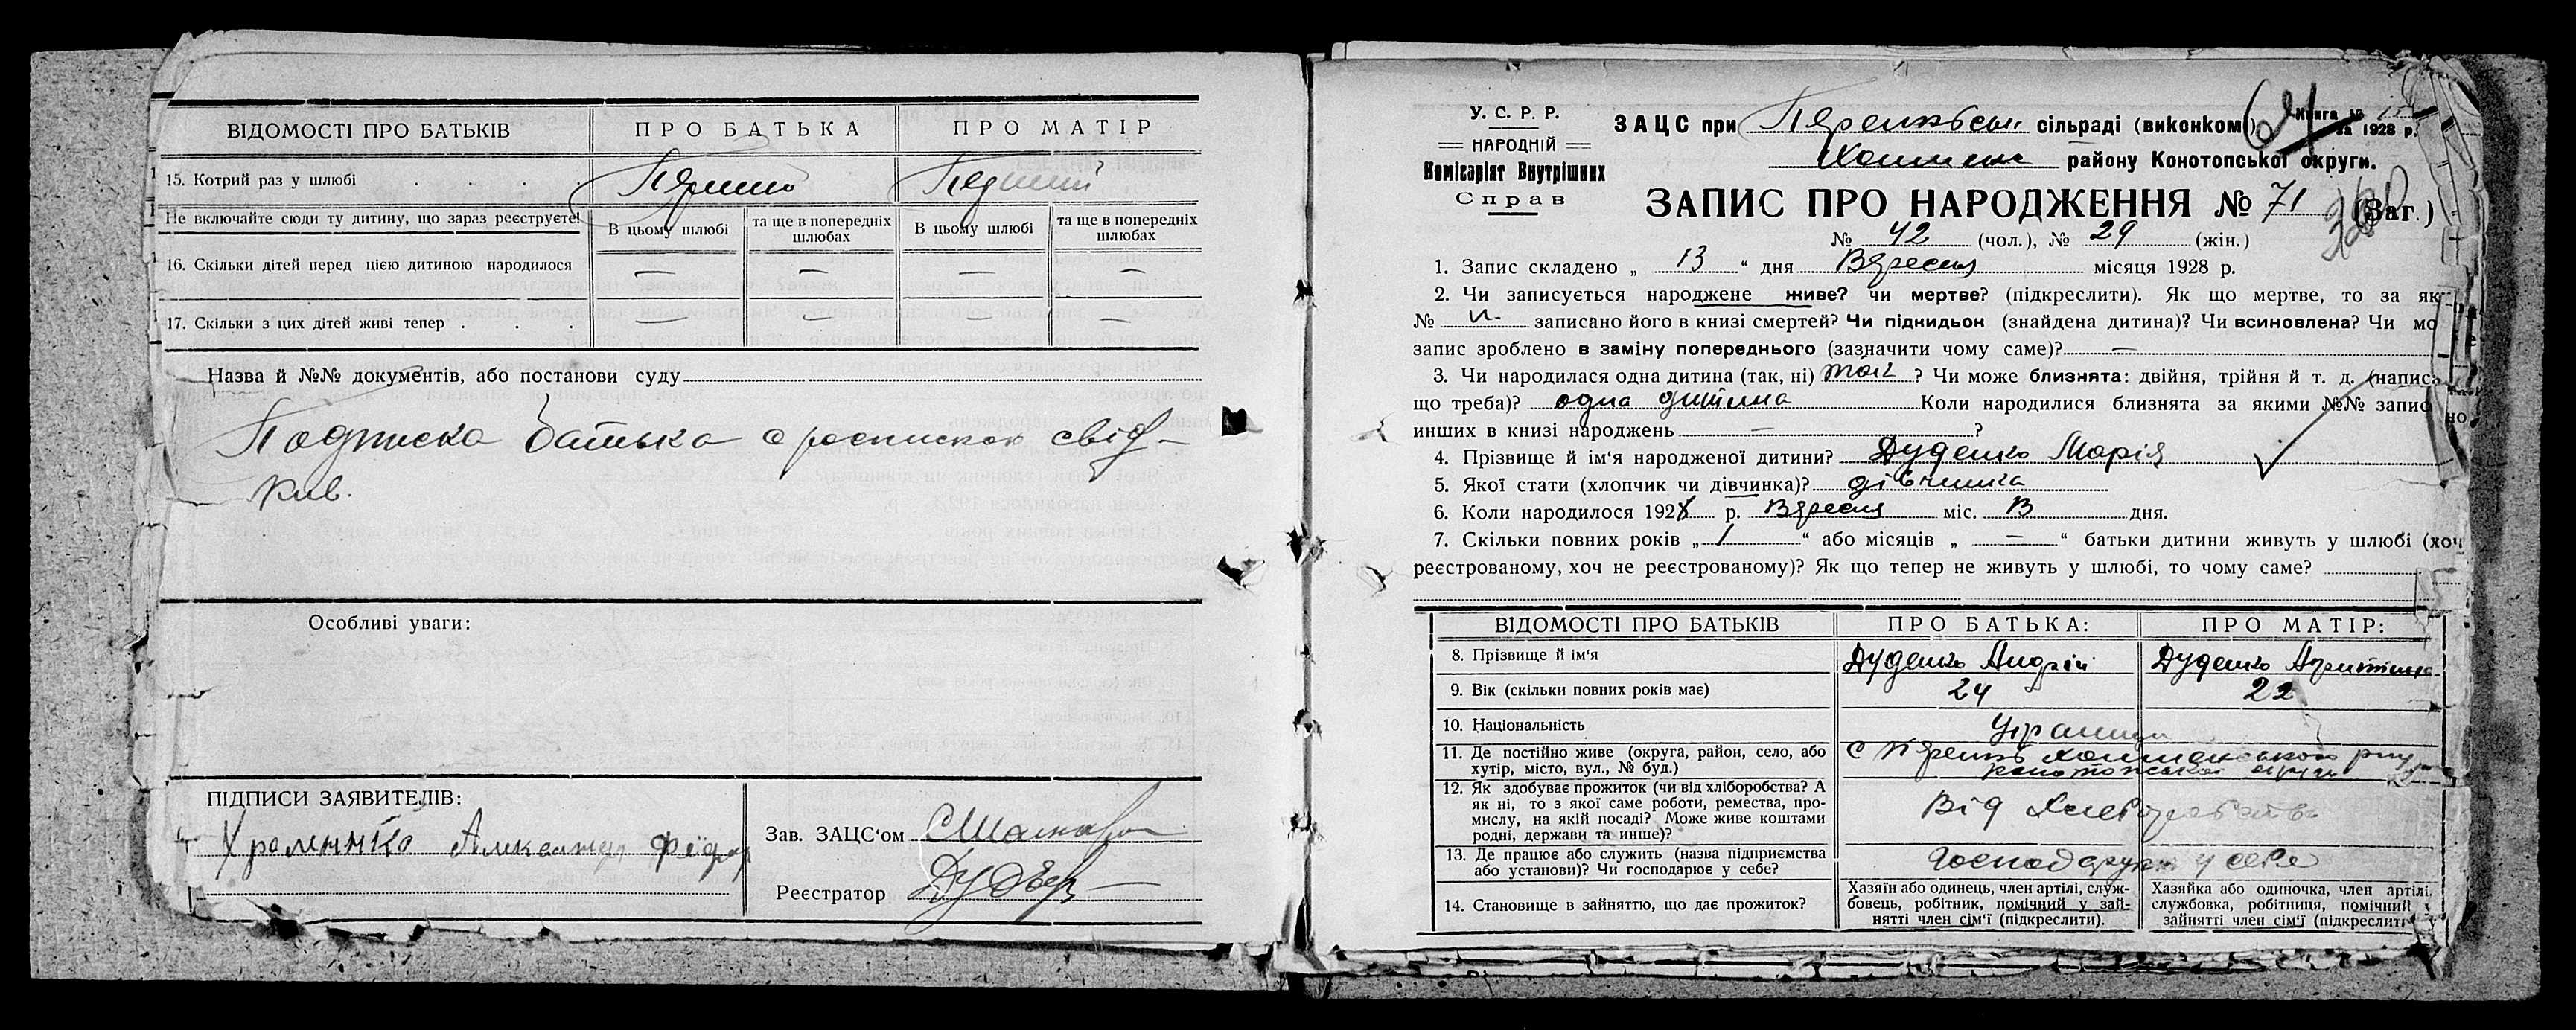 ВІДОМОСТІ ПРО БАТЬКІВ ПРО БАТЬКА ПРО МАТІР
15. Котрий раз у шлюбі . . . . Перший Перший
Не включайте сюди ту дитину, що зараз реєструєте! В цьому шлюбі та ще в попередніх шлюбах В цьому шлюбі та ще в попередніх шлюбах
16. Скільки дітей перед цією дитиною народилося — — — —
17. Скільки з цих дітей живі тепер . . . — — — —
Назва й №№ документів, або постанови суду
Подписка батька о роспискою свід-
ків.
Особливі уваги:
ПІДПИСИ ЗАЯВИТЕЛІВ:
Зав. ЗАЦС‘ом
Реєстратор
У. С. Р. Р.
НАРОДНІЙ
Комісаріят Внутрішних
Справ
ЗАЦС при сільраді (виконком) Книга № за 1928 р.
району Конотопської округи.
ЗАПИС ПРО НАРОДЖЕННЯ № 71 (Заг.)
№ 42 (чол.), № 29 (жін.)
1. Запис складено „ 13 “ дня Вересня місяця 1928 р.
2. Чи записується народжене живе? чи мертве? (підкреслити). Як що мертве, то за як
№ записано його в книзі смертей? Чи піднидьок (знайдена дитина)? Чи всиновлена? Чи мо
запис зроблено в заміну попереднього (зазначити чому саме)? —
3. Чи народилася одна дитина (так, ні) так ? Чи може близнята: двійня, трійня й т. д. (написа
що треба)? одна дитина Коли народилися близнята за якими №№ запис
инших в книзі народжень — ?
4. Прізвище й ім‘я народженої дитини? Дуденко Марія
5. Якої стати (хлопчик чи дівчинка)? дівчинка
6. Коли народилося 1928 р. Вересня міс. дня.
7. Скільки повних років „ 1 “ або місяців „ — “ батьки дитини живуть у шлюбі (хоч
реєстрованому, хоч не реєстрованому)? Як що тепер не живуть у шлюбі, то чому саме?
ВІДОМОСТІ ПРО БАТЬКІВ ПРО БАТЬКА: ПРО МАТІР:
8. Прізвище й ім‘я Дуденко Андрій Дуденко
9. Вік (скільки повних років має) 24 22
10. Національність
11. Де постійно живе (округа, район, село, або
хутір, місто, вул., № буд.)
Конотопської округи
12. Як здобуває прожиток (чи від хліборобства? А
як ні, то з якої саме роботи, ремества, про-
мислу, на якій посаді? Може живе коштами
родні, держави та инше)?
Від Хліборобства
13. Де працює або служить (назва підприємства
або установи)? Чи господарює у себе?
у себе
14. Становище в зайняттю, що дає прожиток?
Хазяїн або одинець, член артілі, служ-
бовець, робітник, помічний у зай-
нятті член сім‘ї (підкреслити).
Хазяйка або одиночка, член артілі,
службовка, робітниця, помічний у
зайнятті член сім‘ї (підкреслити